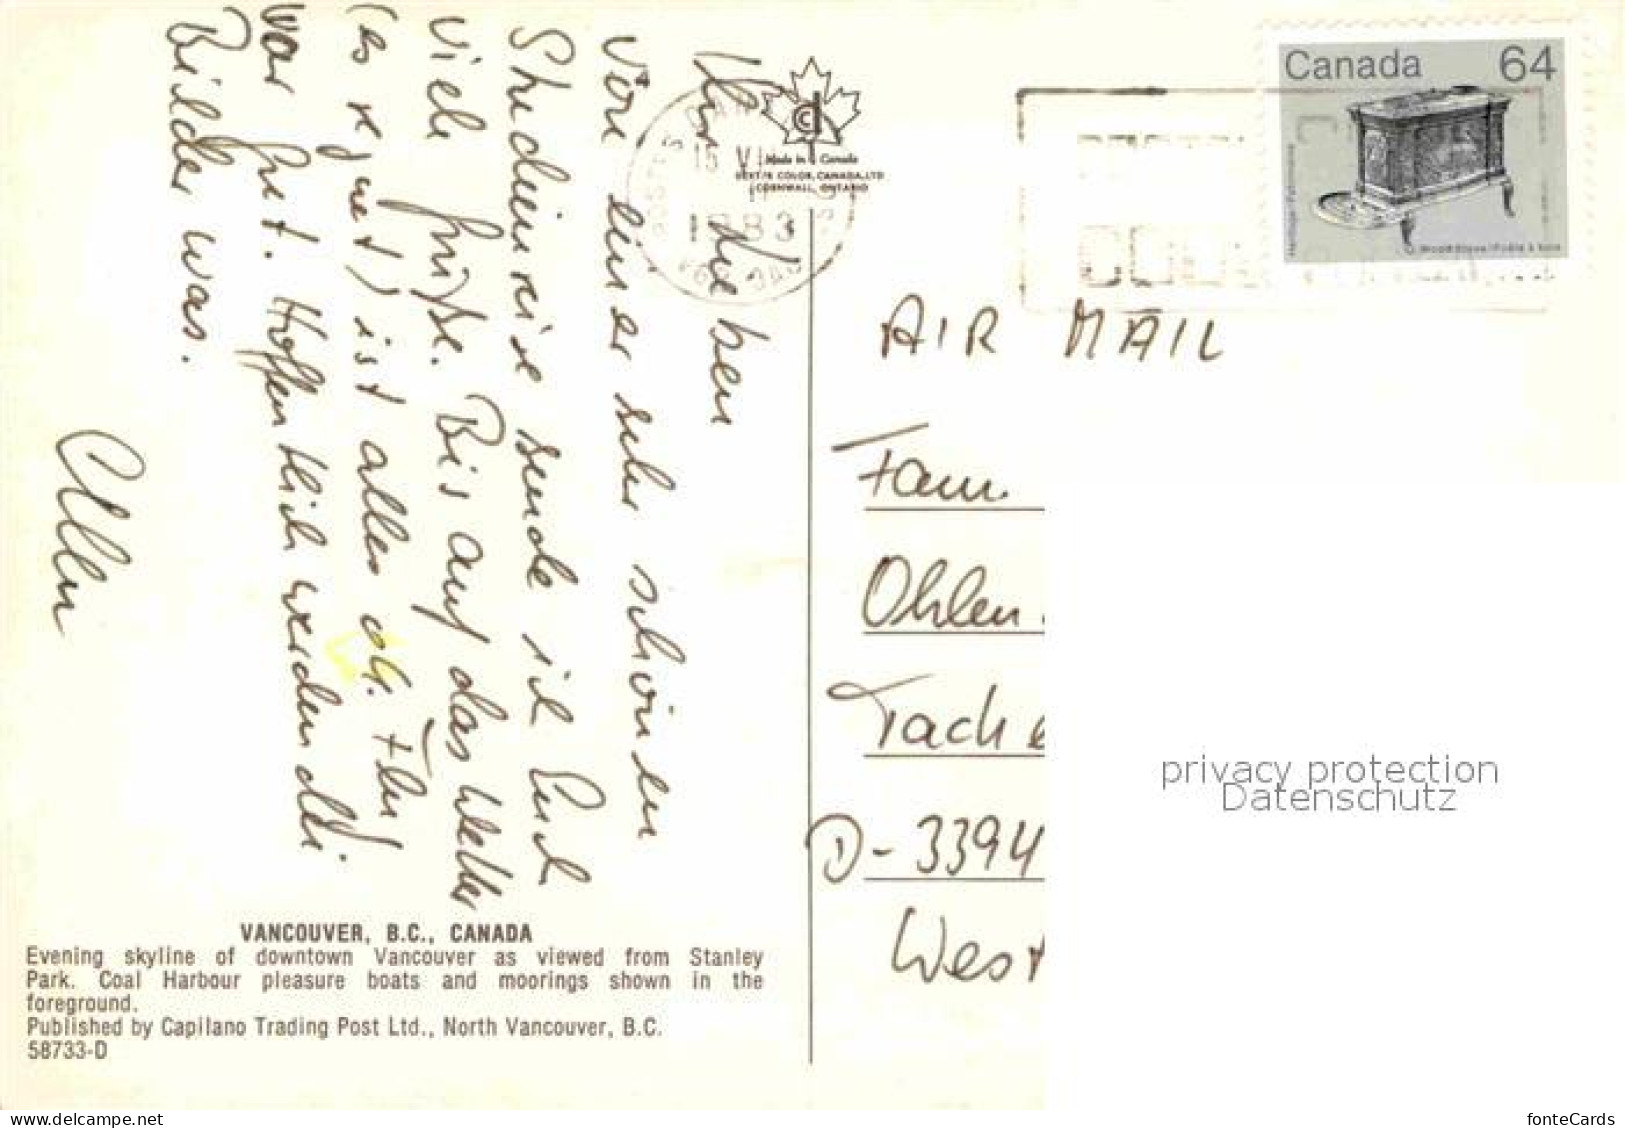 Ihr Lieben
Von einer sehr schönen
Studienreise sende ich Euch
viele Grüße. Bis auf das Wetter
(es regnet) ist alles o.k. Flug
war gut. Hoffentlich werden die
Bilder was.
Made in Canada
DEXTER COLOR CANADA, LTD
CORNWALL, ONTARIO
POSTES
15 VI
1983
CANADA
Canada 64
Wood Stove/Poêle à bois
AIR MAIL
Fam.
Ohlen
Tach
D-3394
West
VANCOUVER, B.C., CANADA
Evening skyline of downtown Vancouver as viewed from Stanley
Park. Coal Harbour pleasure boats and moorings shown in the
foreground.
Published by Capilano Trading Post Ltd., North Vancouver, B.C.
58733-D
privacy protection
Datenschutz
www.ansichtskartenversand.com
fonteCards